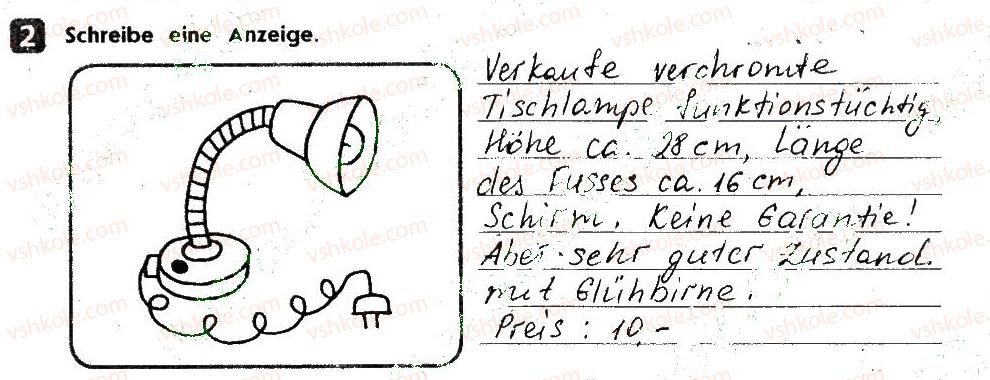 2 Schreibe eine Anzeige.
Verkaufe verchromte
Tischlampe funktionstüchtig,
Höhe ca. 28 cm, Länge
des Fusses ca. 16 cm,
Schirm. Keine Garantie!
Aber sehr guter Zustand.
mit Glühbirne.
Preis : 10,-
vshkole.com